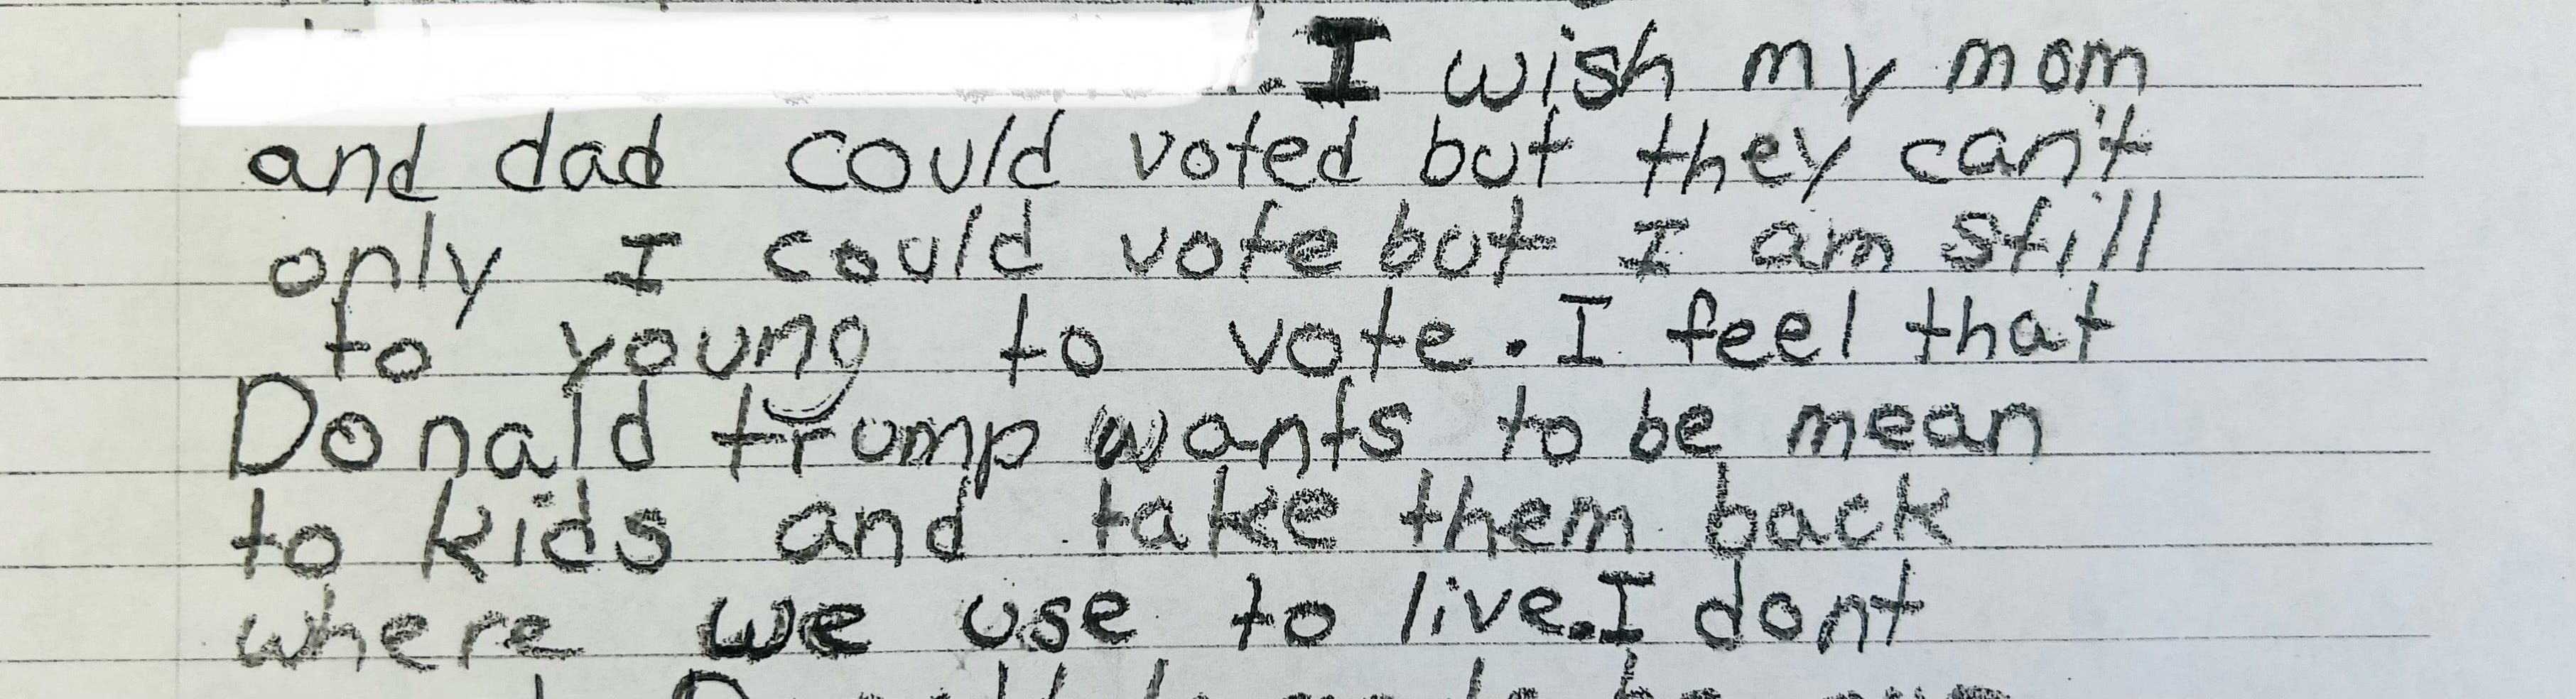 . I wish my mom
and dad could voted but they can't
only I could vote but I am still
to young to vote. I feel that
Donald trump wants to be mean
to kids and take them back
where we use to live. I dont